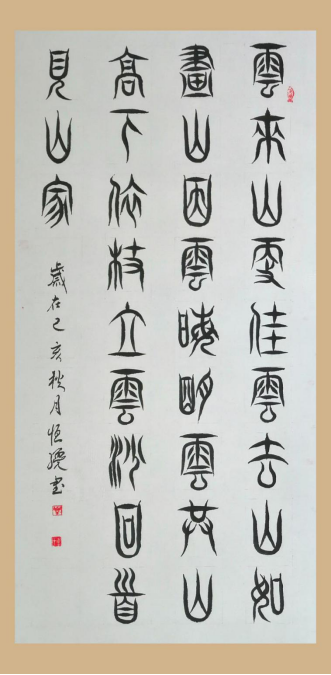 雲來山更佳雲去山如
畫山因雲晦明雲共山
高下依杖立雲沙回首
見山家
歲在己亥秋月恒書